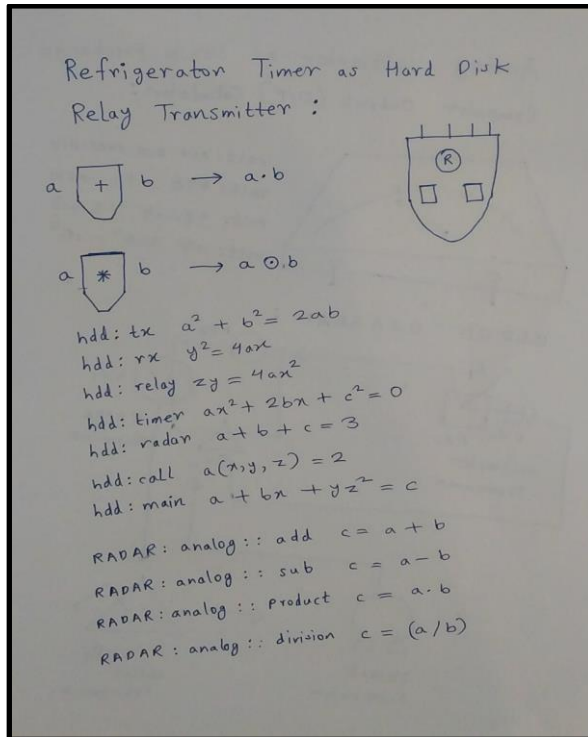 Refrigerator Timer as Hard Disk
Relay Transmitter :
a + b → a · b
R
a * b → a ⊙ b
hdd: tx a² + b² = 2ab
hdd: rx y² = 4ax
hdd: relay zy = 4ax²
hdd: timer ax² + 2bx + c² = 0
hdd: radar a + b + c = 3
hdd: call a(x, y, z) = 2
hdd: main a + bx + yz² = c
RADAR: analog :: add c = a + b
RADAR: analog :: sub c = a - b
RADAR: analog :: product c = a · b
RADAR: analog :: division c = (a/b)